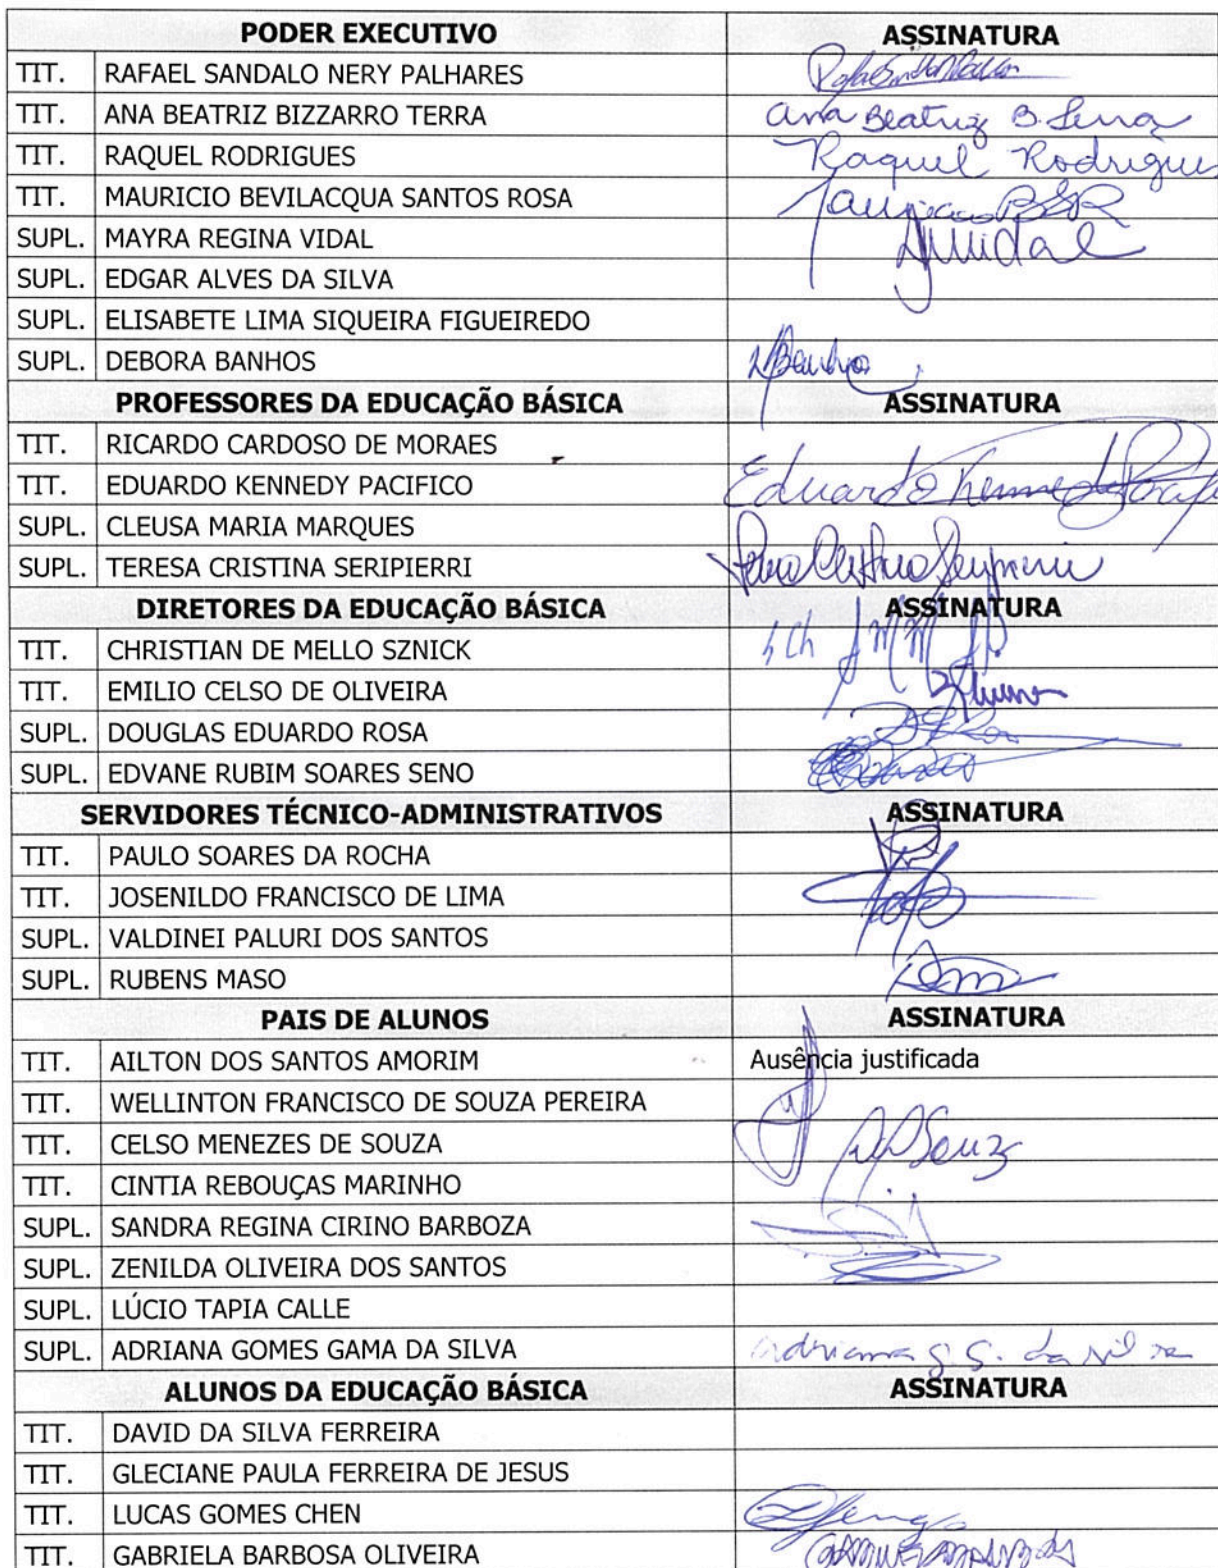 PODER EXECUTIVO ASSINATURA
TIT. RAFAEL SANDALO NERY PALHARES
TIT. ANA BEATRIZ BIZZARRO TERRA Ana Beatriz B. Terra
TIT. RAQUEL RODRIGUES Raquel Rodrigues
TIT. MAURICIO BEVILACQUA SANTOS ROSA
SUPL. MAYRA REGINA VIDAL
SUPL. EDGAR ALVES DA SILVA
SUPL. ELISABETE LIMA SIQUEIRA FIGUEIREDO
SUPL. DEBORA BANHOS
PROFESSORES DA EDUCAÇÃO BÁSICA ASSINATURA
TIT. RICARDO CARDOSO DE MORAES
TIT. EDUARDO KENNEDY PACIFICO Eduardo Kennedy
SUPL. CLEUSA MARIA MARQUES
SUPL. TERESA CRISTINA SERIPIERRI
DIRETORES DA EDUCAÇÃO BÁSICA ASSINATURA
TIT. CHRISTIAN DE MELLO SZNICK
TIT. EMILIO CELSO DE OLIVEIRA
SUPL. DOUGLAS EDUARDO ROSA
SUPL. EDVANE RUBIM SOARES SENO
SERVIDORES TÉCNICO-ADMINISTRATIVOS ASSINATURA
TIT. PAULO SOARES DA ROCHA
TIT. JOSENILDO FRANCISCO DE LIMA
SUPL. VALDINEI PALURI DOS SANTOS
SUPL. RUBENS MASO
PAIS DE ALUNOS ASSINATURA
TIT. AILTON DOS SANTOS AMORIM Ausência justificada
TIT. WELLINTON FRANCISCO DE SOUZA PEREIRA
TIT. CELSO MENEZES DE SOUZA
TIT. CINTIA REBOUÇAS MARINHO
SUPL. SANDRA REGINA CIRINO BARBOZA
SUPL. ZENILDA OLIVEIRA DOS SANTOS
SUPL. LÚCIO TAPIA CALLE
SUPL. ADRIANA GOMES GAMA DA SILVA Adriana G. G. da Silva
ALUNOS DA EDUCAÇÃO BÁSICA ASSINATURA
TIT. DAVID DA SILVA FERREIRA
TIT. GLECIANE PAULA FERREIRA DE JESUS
TIT. LUCAS GOMES CHEN
TIT. GABRIELA BARBOSA OLIVEIRA